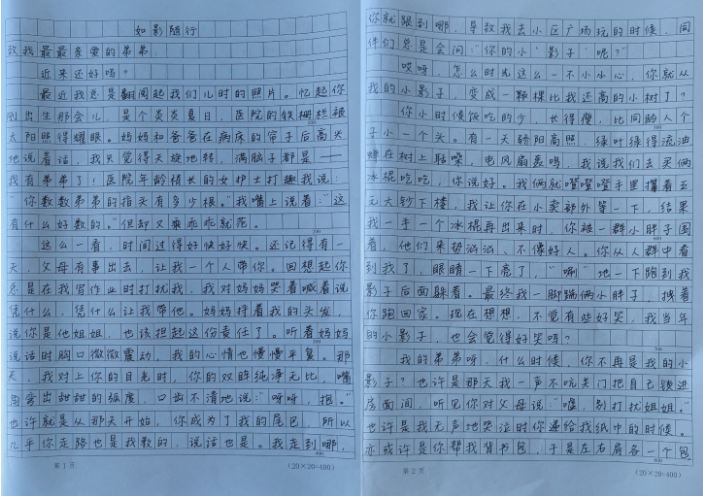 如影随行
致我最最亲爱的弟弟：
近来还好吗？
最近我总是翻阅起我们儿时的照片。忆起你
刚出生那会儿，是个炎炎夏日，医院的铁栅栏被
太阳照得耀眼。妈妈和爸爸在病床的帘子后高兴
地说着话，我只觉得天旋地转，满脑子都是——
我有弟弟了！医院年龄稍长的女护士打趣我说：
“你数数弟弟的指头有多少根。”我嘴上说着：“这
有什么好数的。”但却又乖乖就范。
这么一看，时间过得好快好快。还记得有一
天，父母有事出去，让我一个人带你。回想起你
总是在我写作业时打扰我，我对妈妈哭着喊着说
凭什么，凭什么让我带他。妈妈捋着我的头发，
说你是他姐姐，也该担起这份责任了。听着妈妈
说话时胸口微微震动，我的心情也慢慢平复。那
天，我对上你的目光时，你的双眸纯净无比，嘴
角尝出甜甜的弧度，口齿不清地说：“呀呀，抱。”
也许就是从那天开始，你成为了我的尾巴，所以
几乎你走路也是我教的，说话也是。我走到哪，
第1页
(20×20=400)
你就跟到哪，导致我去小区广场玩的时候，同
伴们总是会问：“你的小‘影子’呢？”
哎呀，怎么时光这么一不小心，你就从
我的小影子，变成一颗棵比我还高的小树了？
你小时候饭吃的少，长得瘦，比同龄人个
子小一个头。有一天骄阳高照，绿叶绿得流油
蝉在树上聒噪，电风扇轰鸣，我说我们去买俩
冰棍吃吃，你说好。我俩就噔噔噔手里攥着五
元大钞下楼，我让你在小卖部外等一下，结果
我一手一个冰棍再出来时，你被一群小胖子围
着，他们来势汹汹，不像好人。你从人群中看
到我了，眼睛一下亮了，“唰”地一下跑到我
影子后面躲着。最终我一脚踹俩小胖子，拽着
你跑回家。现在想想，不觉有些好笑，我当年
的小影子，也会觉得好笑吗？
我的弟弟呀，什么时候，你不再是我的小
影子？也许是那天我一声不吭关门把自己锁进
房间间，听见你对父母说“嘘，别打扰姐姐。”
也许是我无声地哭泣时你递给我纸巾的时候。
亦或许是你帮我背书包，于是左右肩各一个包
第2页
(20×20=400)